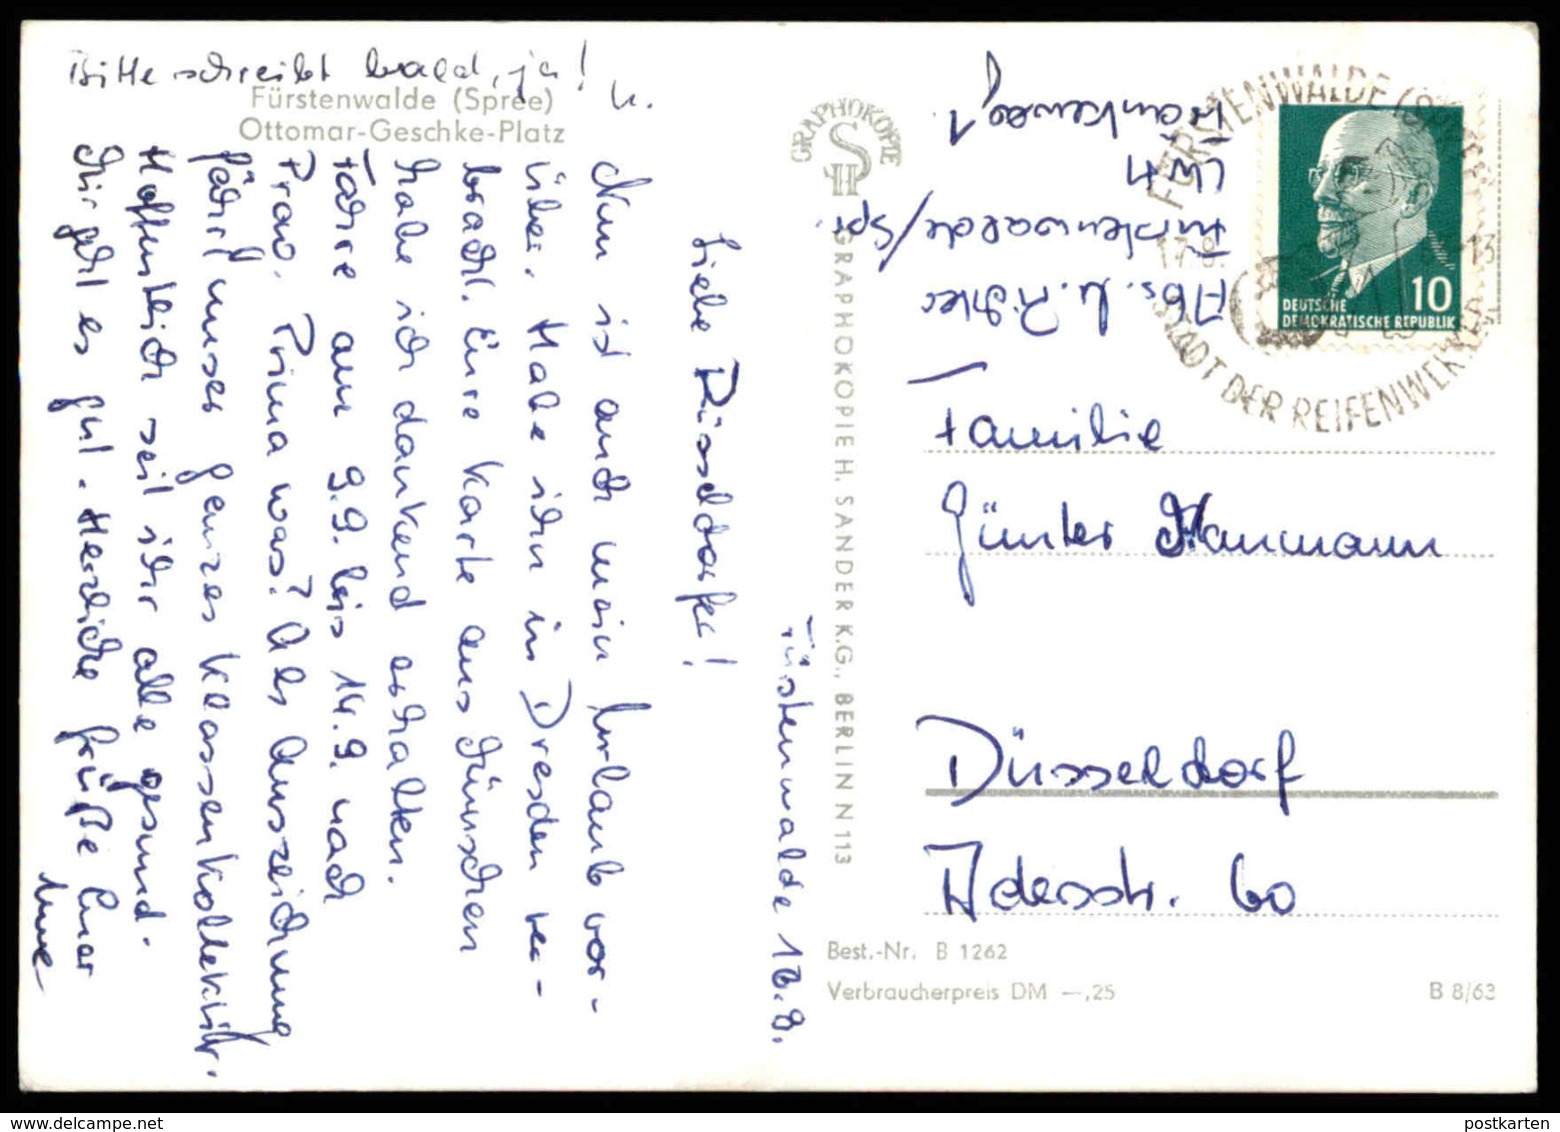 Bitte schreibt bald, ja!
Fürstenwalde (Spree)
Ottomar-Geschke-Platz
Fürstenwalde 16.8.
Liebe Düsseldorfer!
Nun ist auch mein Urlaub vor-
über. Habe ihn in Dresden ver-
bracht. Eure Karte aus München
habe ich dankend erhalten.
Fahre am 9.9. bis 14.9. nach
Prag. Prima was? Als Auszeichnung
fährt unser ganzes Klassenkollektiv.
Hoffentlich seit ihr alle gesund.
Mir geht es gut. Herzliche Grüße Euer
u.
GRAPHOKOPIE
SH
GRAPHOKOPIE H. SANDER K.G., BERLIN N 113
Abs. U. Richter
Fürstenwalde/Spr.
1
FÜRSTENWALDE (SPREE)
17.8.
-13
STADT DER REIFENWERKER
DEUTSCHE
DEMOKRATISCHE REPUBLIK
10
Familie
Günter Hanmann
Düsseldorf
Adersstr. 60
Best.-Nr. B 1262
Verbraucherpreis DM —,25
B 8/63
postkarten